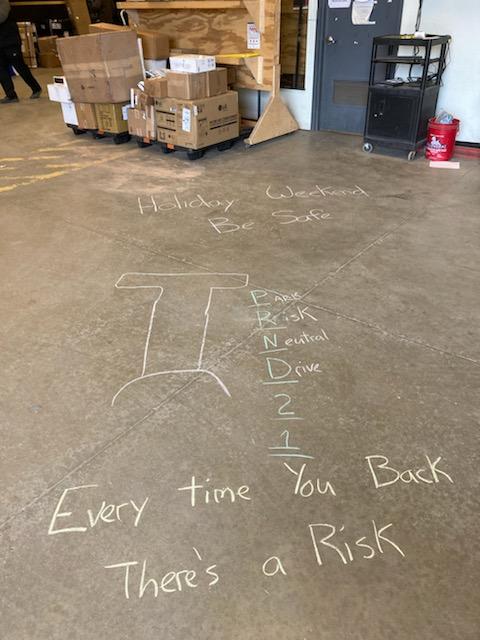 Holiday Weekend
Be Safe
Park
Risk
Neutral
Drive
2
1
Every time You Back
There's a Risk